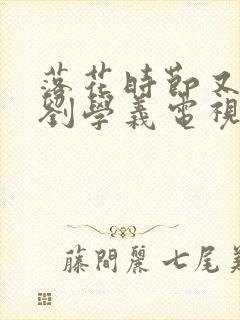 落花時節又
劉學義電視
藤間麗 七尾美